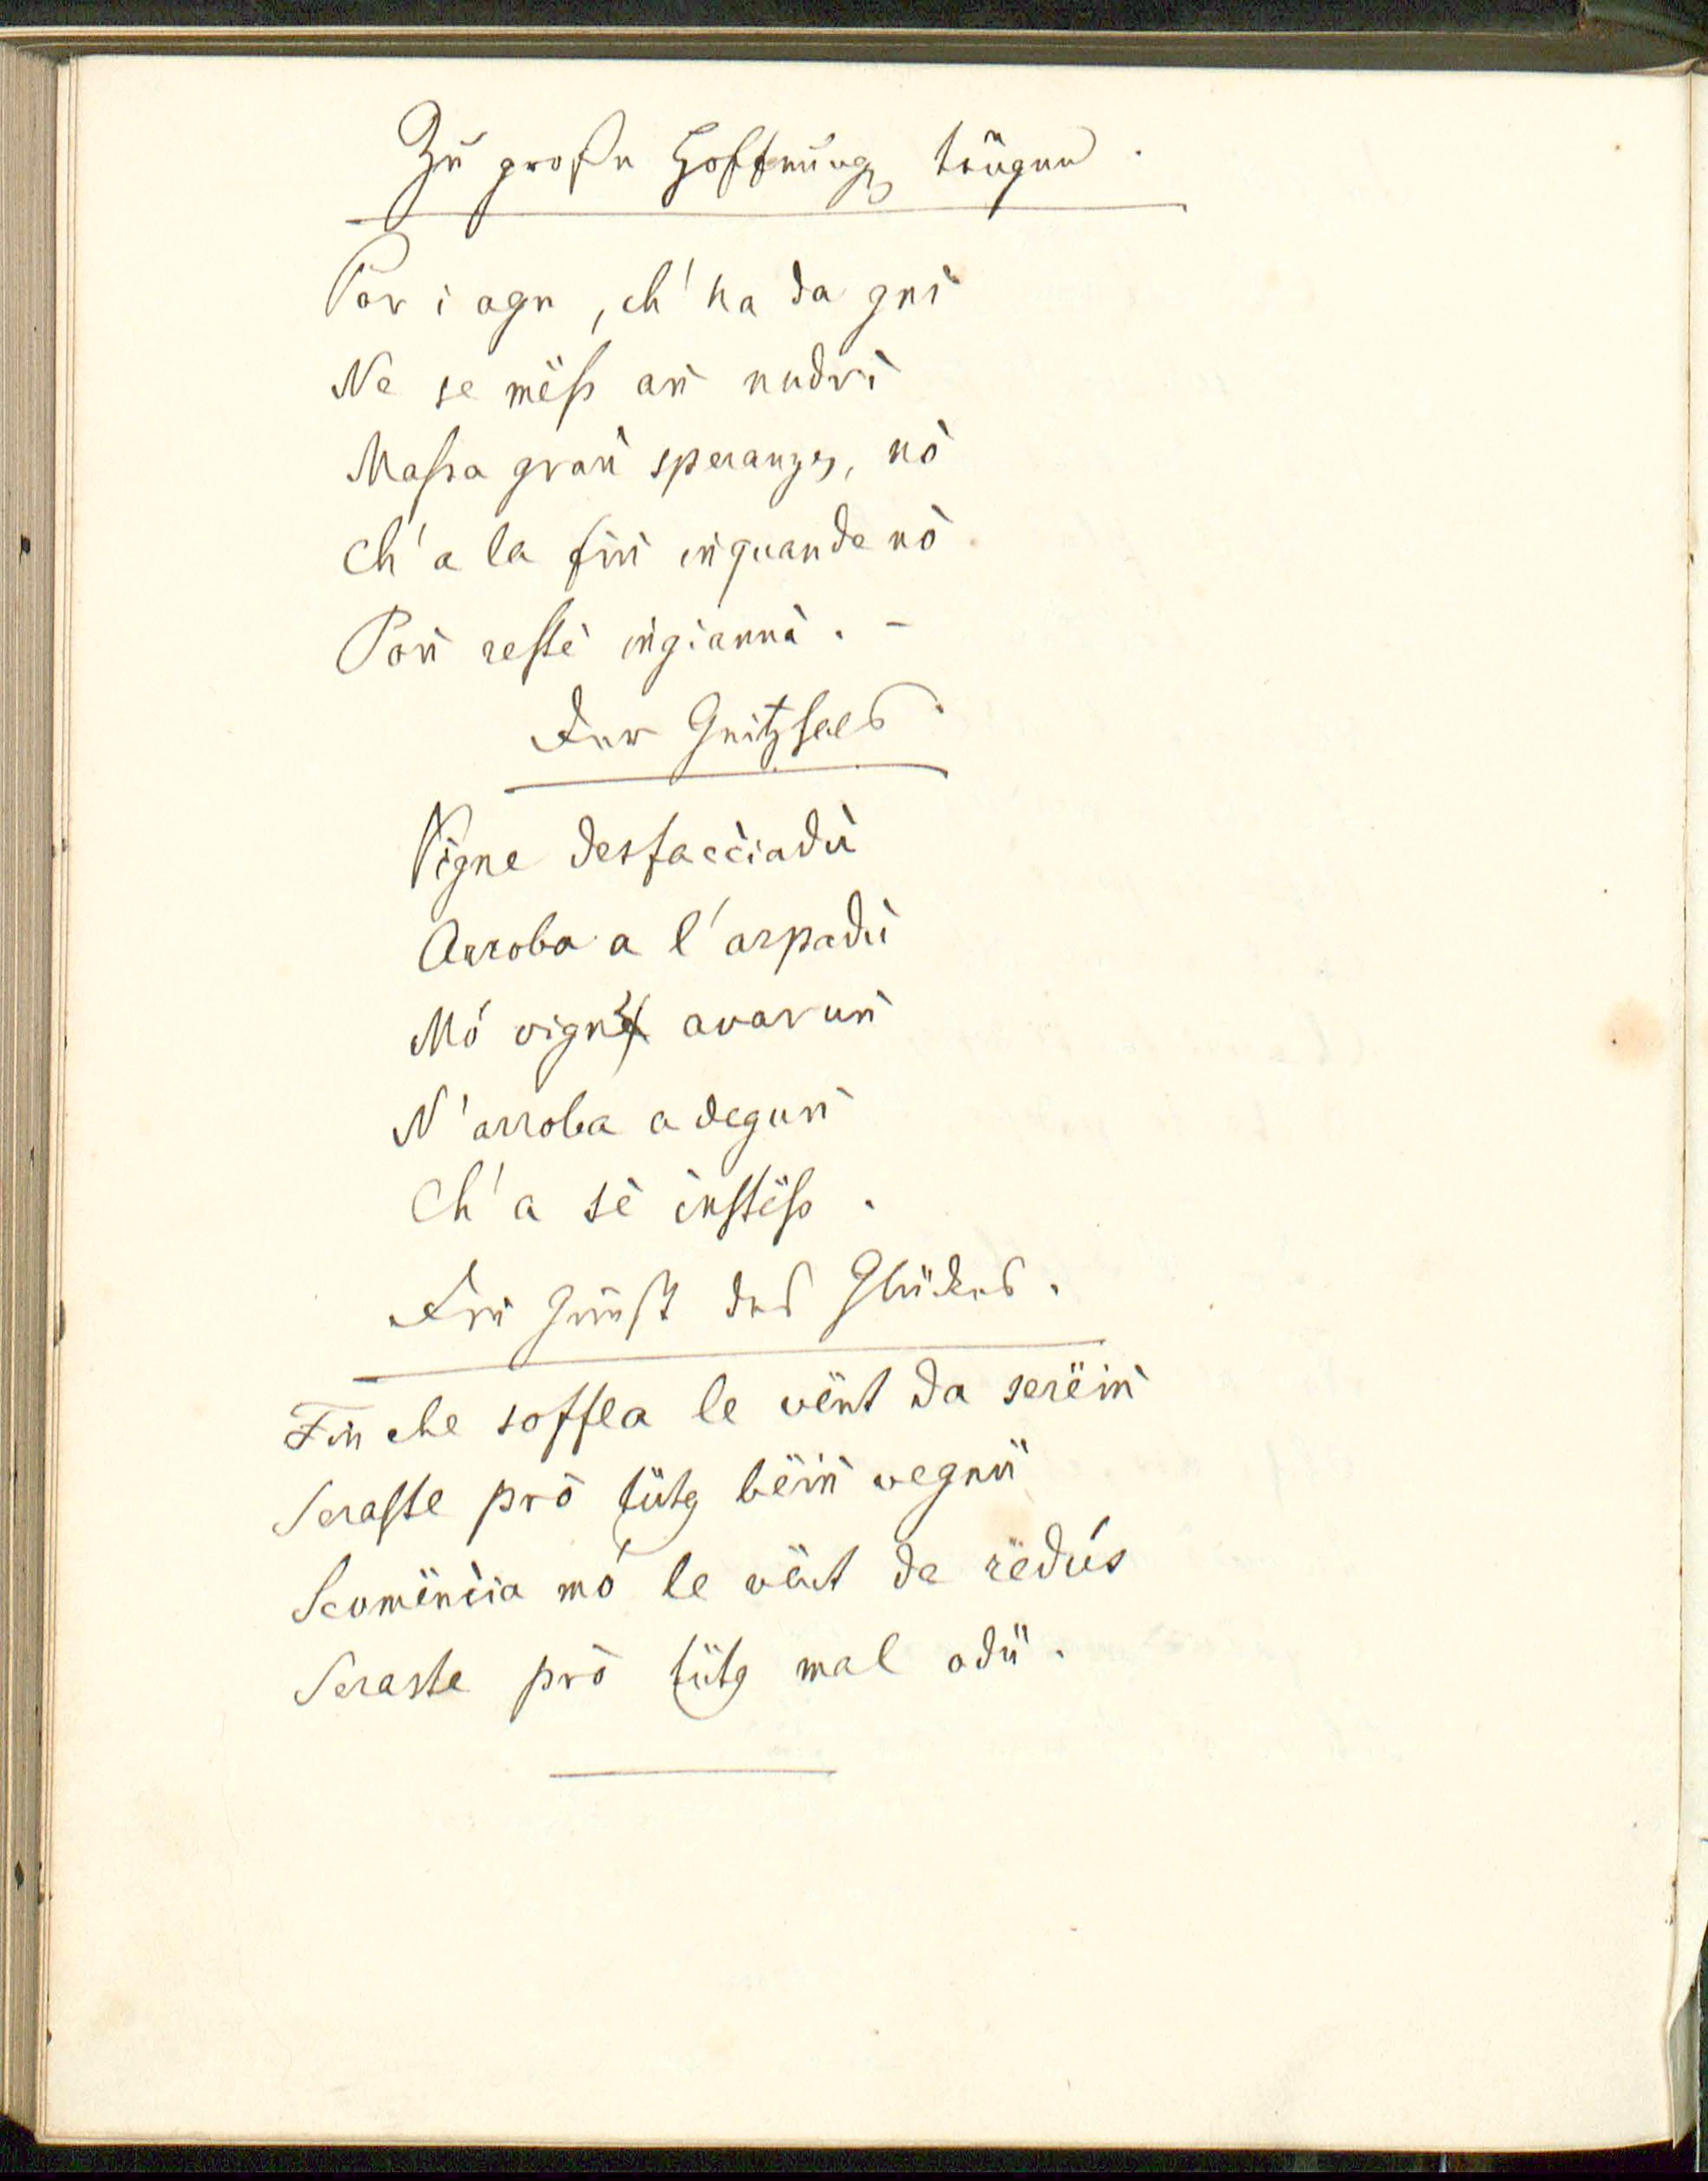 Zu große Hoffnung trügen.
Por i agn, ch'ha da gnì
Ne se mëss aǹ nudrì
Massa graǹ speranzes, nò
Ch'a la fiǹ iǹquande nò
Poǹ restè iǹgiannà. -
Der Geitzhals.
Vigne desfacciadù
Arroba a l'arpadù
Mó vigne avaruǹ
N'arroba a deguǹ
Ch'a sè instëss.
Die Gunst des Glückes.
Fin che soffla le vënt da serëiǹ
Seraste prò tütg bëiǹ vegnü
Scomëncia mó le vënt de redús
Seraste prò tütg mal odü.